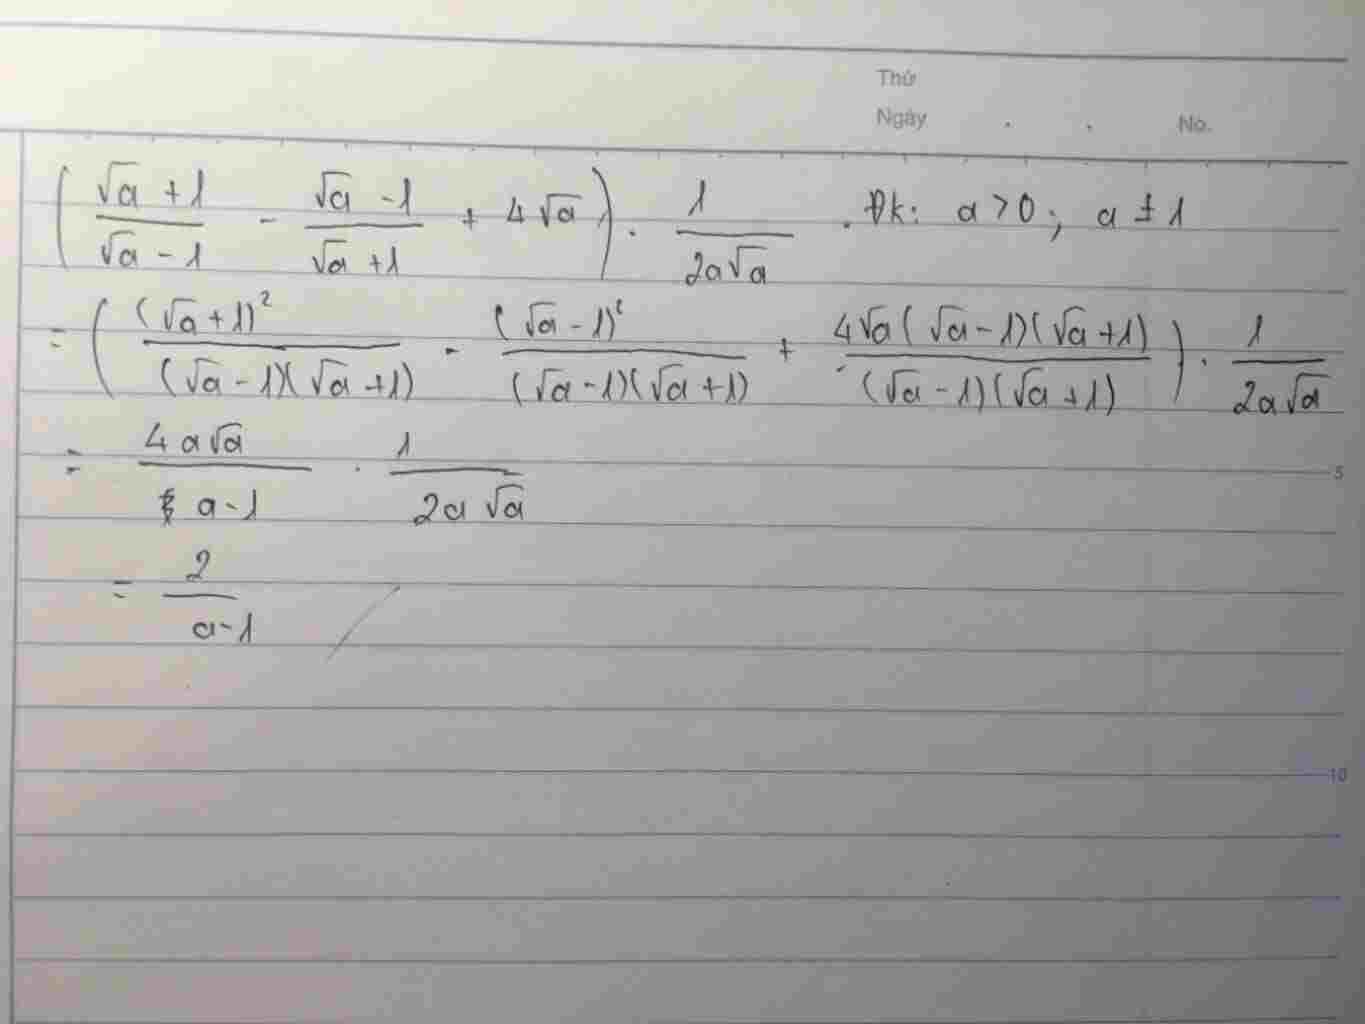 Thứ
Ngày . . No.
( (√a + 1)/(√a - 1) - (√a - 1)/(√a + 1) + 4√a ) . 1/(2a√a) . Đk: a > 0; a ≠ 1
= ( (√a + 1)²/((√a - 1)(√a + 1)) - (√a - 1)²/((√a - 1)(√a + 1)) + 4√a(√a - 1)(√a + 1)/((√a - 1)(√a + 1)) ) . 1/(2a√a)
= 4a√a/(a - 1) . 1/(2a√a)
5
= 2/(a - 1)
10